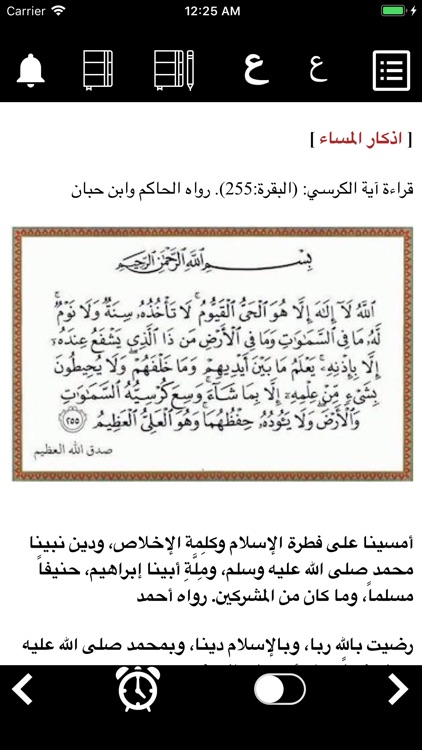 Carrier 12:25 AM
ع ع
[ اذكار المساء ]
قراءة آية الكرسي: (البقرة:255). رواه الحاكم وابن حبان
بِسْمِ اللَّهِ الرَّحْمَٰنِ الرَّحِيمِ
اللَّهُ لَا إِلَٰهَ إِلَّا هُوَ الْحَيُّ الْقَيُّومُ ۚ لَا تَأْخُذُهُ سِنَةٌ وَلَا نَوْمٌ ۚ
لَّهُ مَا فِي السَّمَاوَاتِ وَمَا فِي الْأَرْضِ مَن ذَا الَّذِي يَشْفَعُ عِندَهُ
إِلَّا بِإِذْنِهِ ۚ يَعْلَمُ مَا بَيْنَ أَيْدِيهِمْ وَمَا خَلْفَهُمْ ۖ وَلَا يُحِيطُونَ
بِشَيْءٍ مِّنْ عِلْمِهِ إِلَّا بِمَا شَاءَ ۚ وَسِعَ كُرْسِيُّهُ السَّمَاوَاتِ
وَالْأَرْضَ ۖ وَلَا يَئُودُهُ حِفْظُهُمَا ۚ وَهُوَ الْعَلِيُّ الْعَظِيمُ ٢٥٥
صدق الله العظيم
أمسينا على فطرة الإسلام وكلِمة الإخلاص، ودين نبينا
محمد صلى الله عليه وسلم، ومِلَّةِ أبينا إبراهيم، حنيفاً
مسلماً، وما كان من المشركين. رواه أحمد
رضيت بالله ربا، وبالإسلام دينا، وبمحمد صلى الله عليه